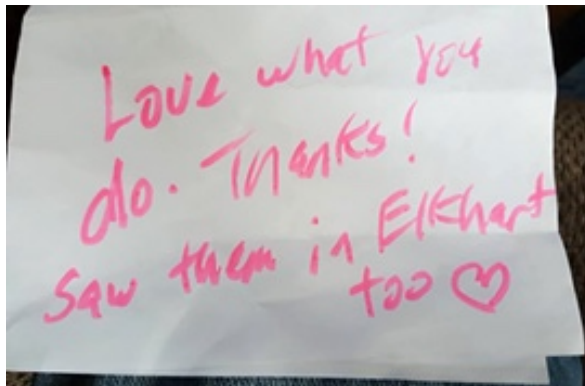 Love what you
do. Thanks!
Saw them in Elkhart
too ♡